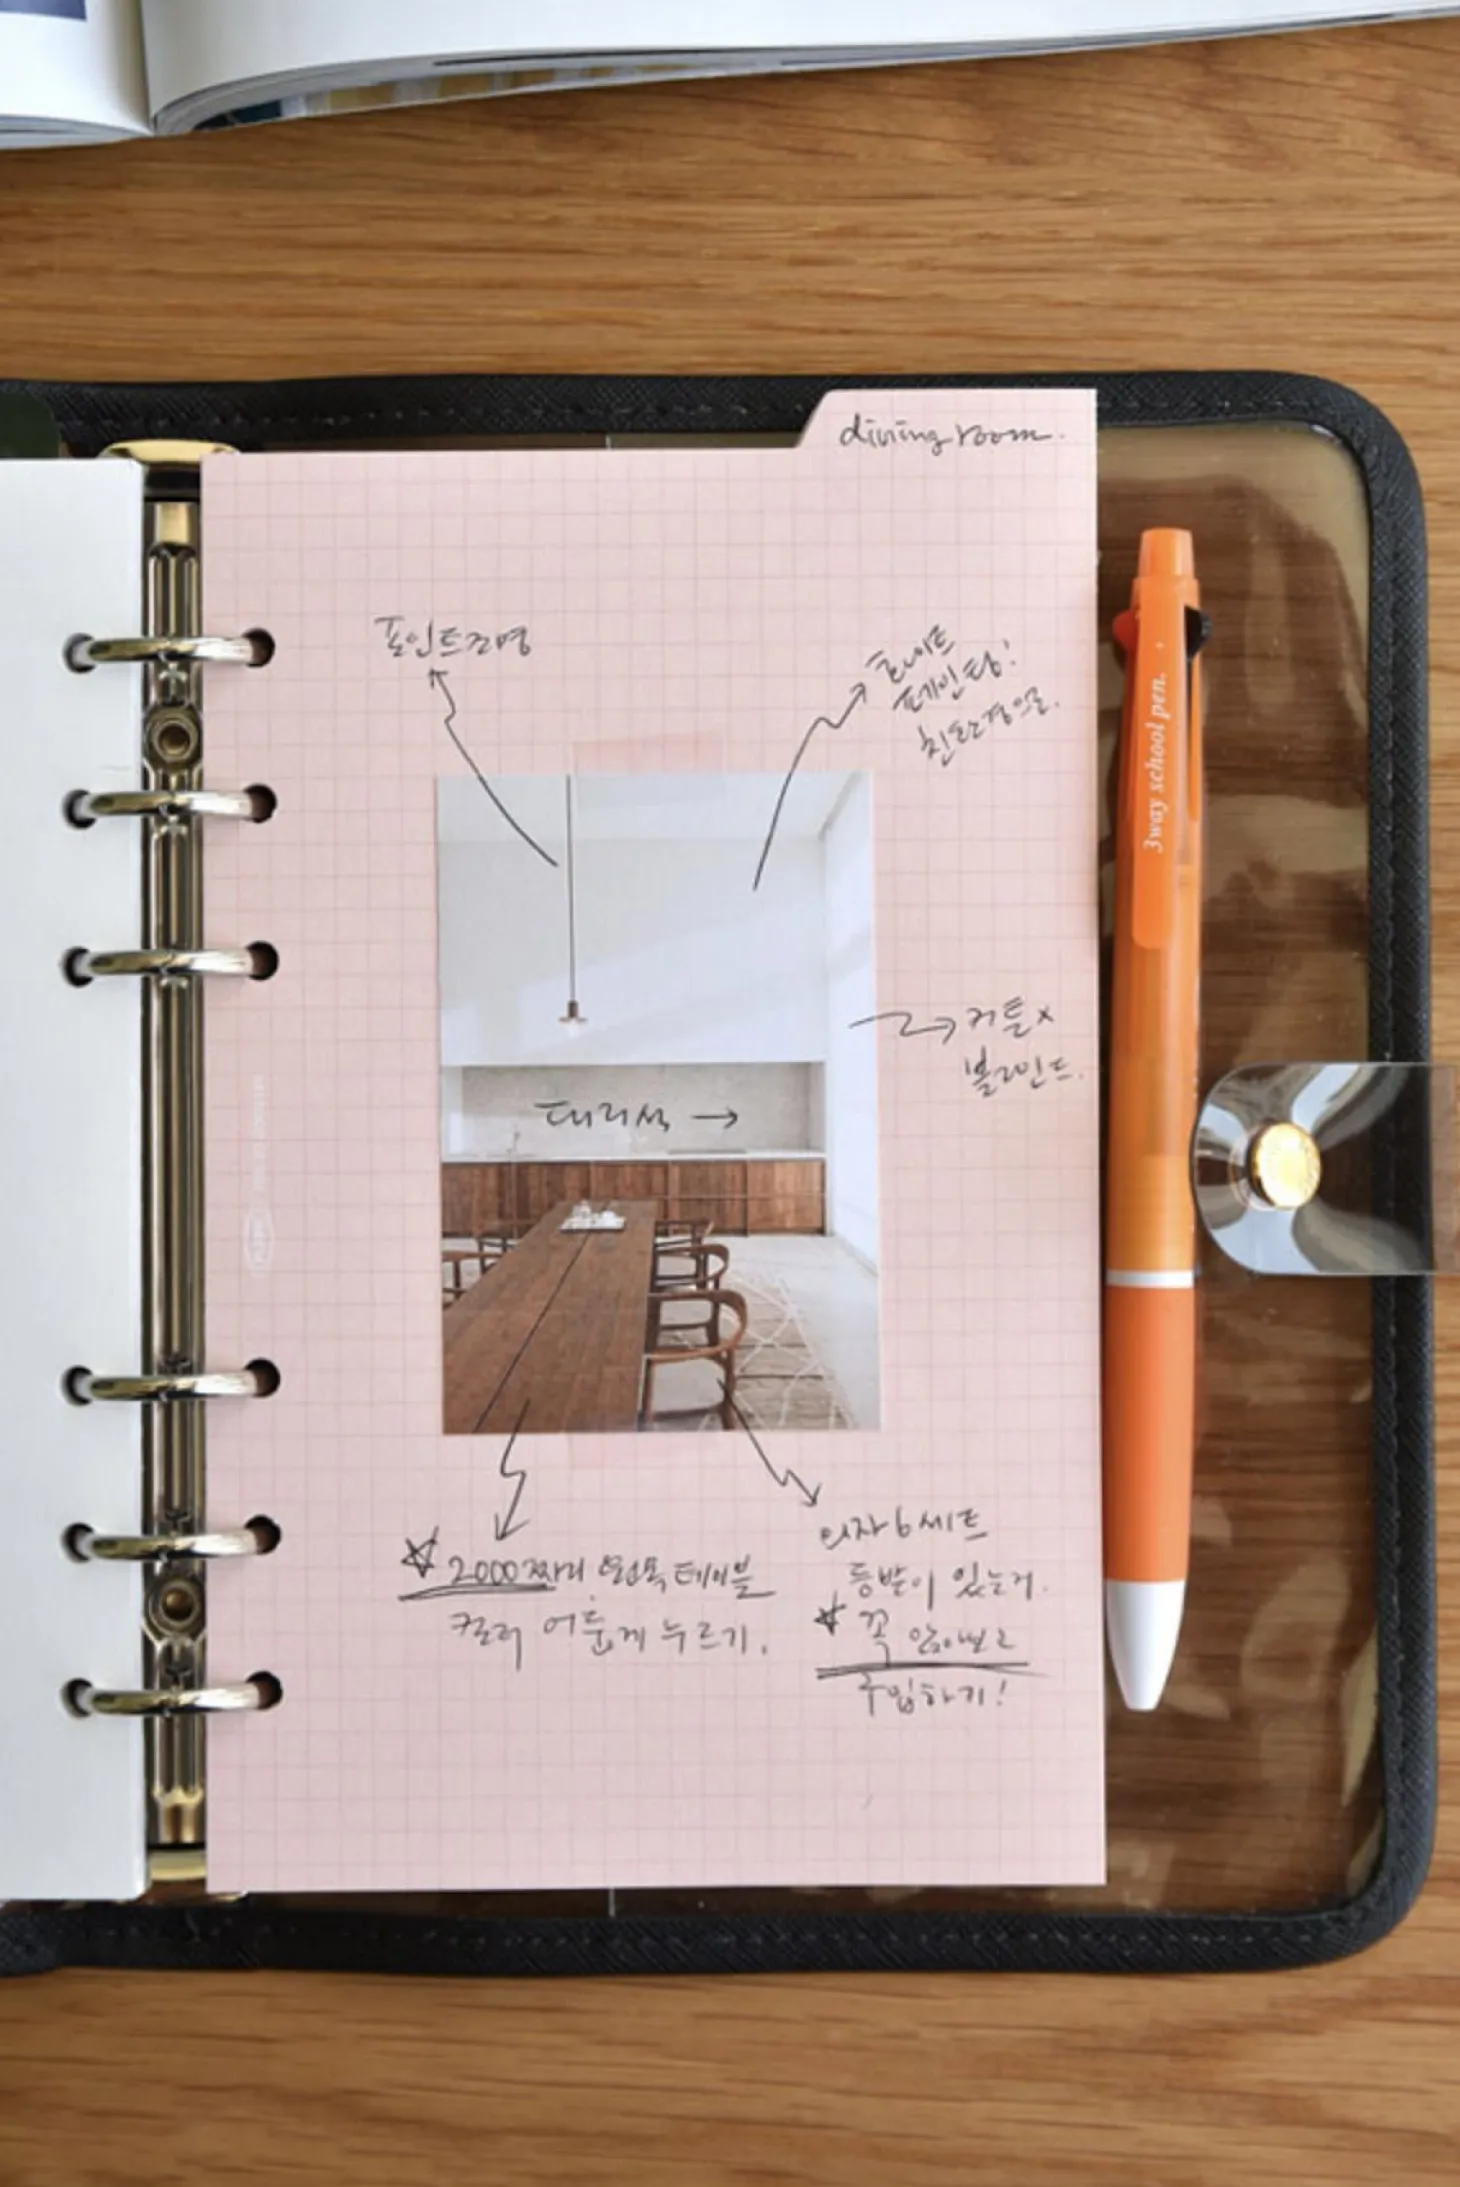 dining room.
포인트조명
화이트
페인팅!
친환경으로.
커튼x
블라인드.
대리석 →
2000짜리 원목 테이블
컬러 어둡게 누르기.
의자 6세트
등받이 있는거.
꼭 앉아보고
구입하기!
3way school pen.